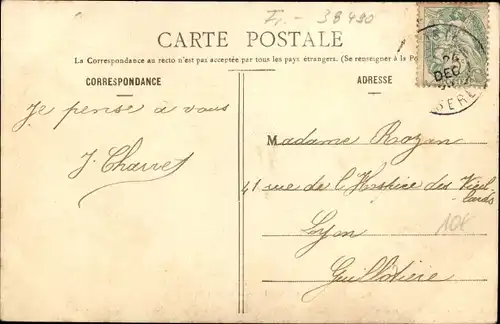 Fr. - 38490
CARTE POSTALE
La Correspondance au recto n'est pas acceptée par tous les pays étrangers. (Se renseigner à la Po
CORRESPONDANCE
ADRESSE
24
DEC
ISERE
Je pense à vous
J. Charvet
Madame Rozan
41 rue de l'Hospice des Vieil-
lards
Lyon
Guillotière
10f